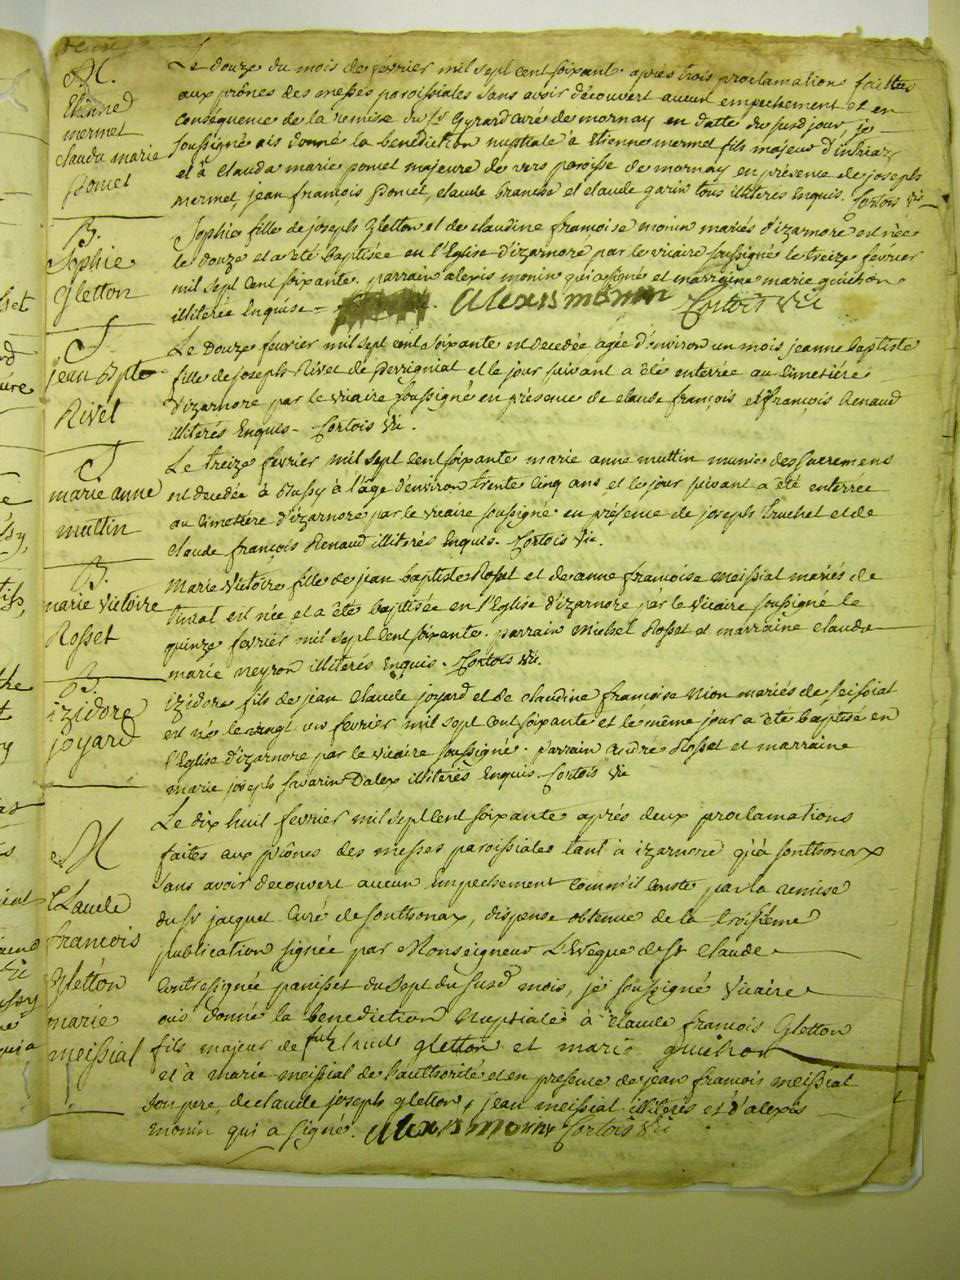 M.
Etienne
mermet
clauda marie
pomet
Le douze du mois de fevrier mil sept cent soixante apres trois proclamations faittes
aux prônes des messes paroissiales sans avoir découvert aucun empechement et en
consequence de la remise du Sr Gyrard curé de mornay en datte du susd jour, je
soussigné ais donné la benediction nuptiale à Etienne mermet fils majeur d'intriaz
et à claude marie pomet majeure de vers paroisse de mornay en présence de joseph
mermet, jean françois Pomet, claude et claude garin tous illiterés enquis. Cortois Vic
B.
Sophie
Gletton
Sophie fille de joseph Gletton et de claudine françoise monin mariés d'izarnore est née
le douze et a été baptisée en l'Eglise d'izarnore par le vicaire soussigné le treize février
mil sept cent soixante. parrain alexis monin qui a signé et marraine marie guichon
illiterée Enquise - Alexis monin Cortois Vic
S
jean bpte
Rivel
Le Douze fevrier mil sept cent soixante est decedée agée d'environ un mois jeanne baptiste
fille de joseph Rivel de Perrigniat et le jour suivant a été enterrée au cimetiére
d'izarnore par le vicaire soussigné en présence de claude françois et françois Renaud
illiterés Enquis - Cortois Vic.
S
marie anne
muttin
Le treize fevrier mil sept cent soixante marie anne muttin munie des sacremens
est decedée à Bussy à l'âge d'environ trente cinq ans et le jour suivant a été enterrée
au cimetiére d'izarnore par le vicaire soussigné en présence de joseph truchet et de
claude françois Renaud illiterés Enquis. Cortois Vic.
B.
marie victoire
Rosset
Marie Victoire fille de jean baptiste Rosset et de anne françoise meissiat mariés de
tignat est née et a été baptisée en l'Eglise d'izarnore par le Vicaire soussigné le
quinze fevrier mil sept cent soixante. parrain Michel Rosset et marraine claude
marie neyron illiterés Enquis. Cortois Vic.
B.
izidore
joyard
izidore fils de jean claude joyard et de claudine françoise nion mariés de seissiat
est né le vingt un fevrier mil sept cent soixante et le même jour a été baptisé en
l'Eglise d'izarnore par le vicaire soussigné. parrain andré Rosset et marraine
marie joseph savarin Dalex illiterés Enquis - Cortois Vic
M
Claude
françois
Gletton
marie
meissiat
Le dix huit fevrier mil sept cent soixante après deux proclamations
faites aux prônes des messes paroissiales tant à izarnore qu'à sonthonax
sans avoir decouvert aucun empechement comm'il conste par la remise
du Sr jacquet curé de sonthonax, dispense obtenue de la troisieme
publication signée par Monseigneur L'Evêque de St Claude
contresignée panisset du sept du susd mois, je soussigné vicaire
ais donné la benediction nuptiale à claude françois Gletton
fils majeur de fut claude gletton et marie guichon
et à marie meissiat de l'authorité et en presence de jean françois meissiat
son pere, de claude joseph gletton, jean meissiat illiterés et d'alexis
monin qui a signé. Alexis monin Cortois Vic